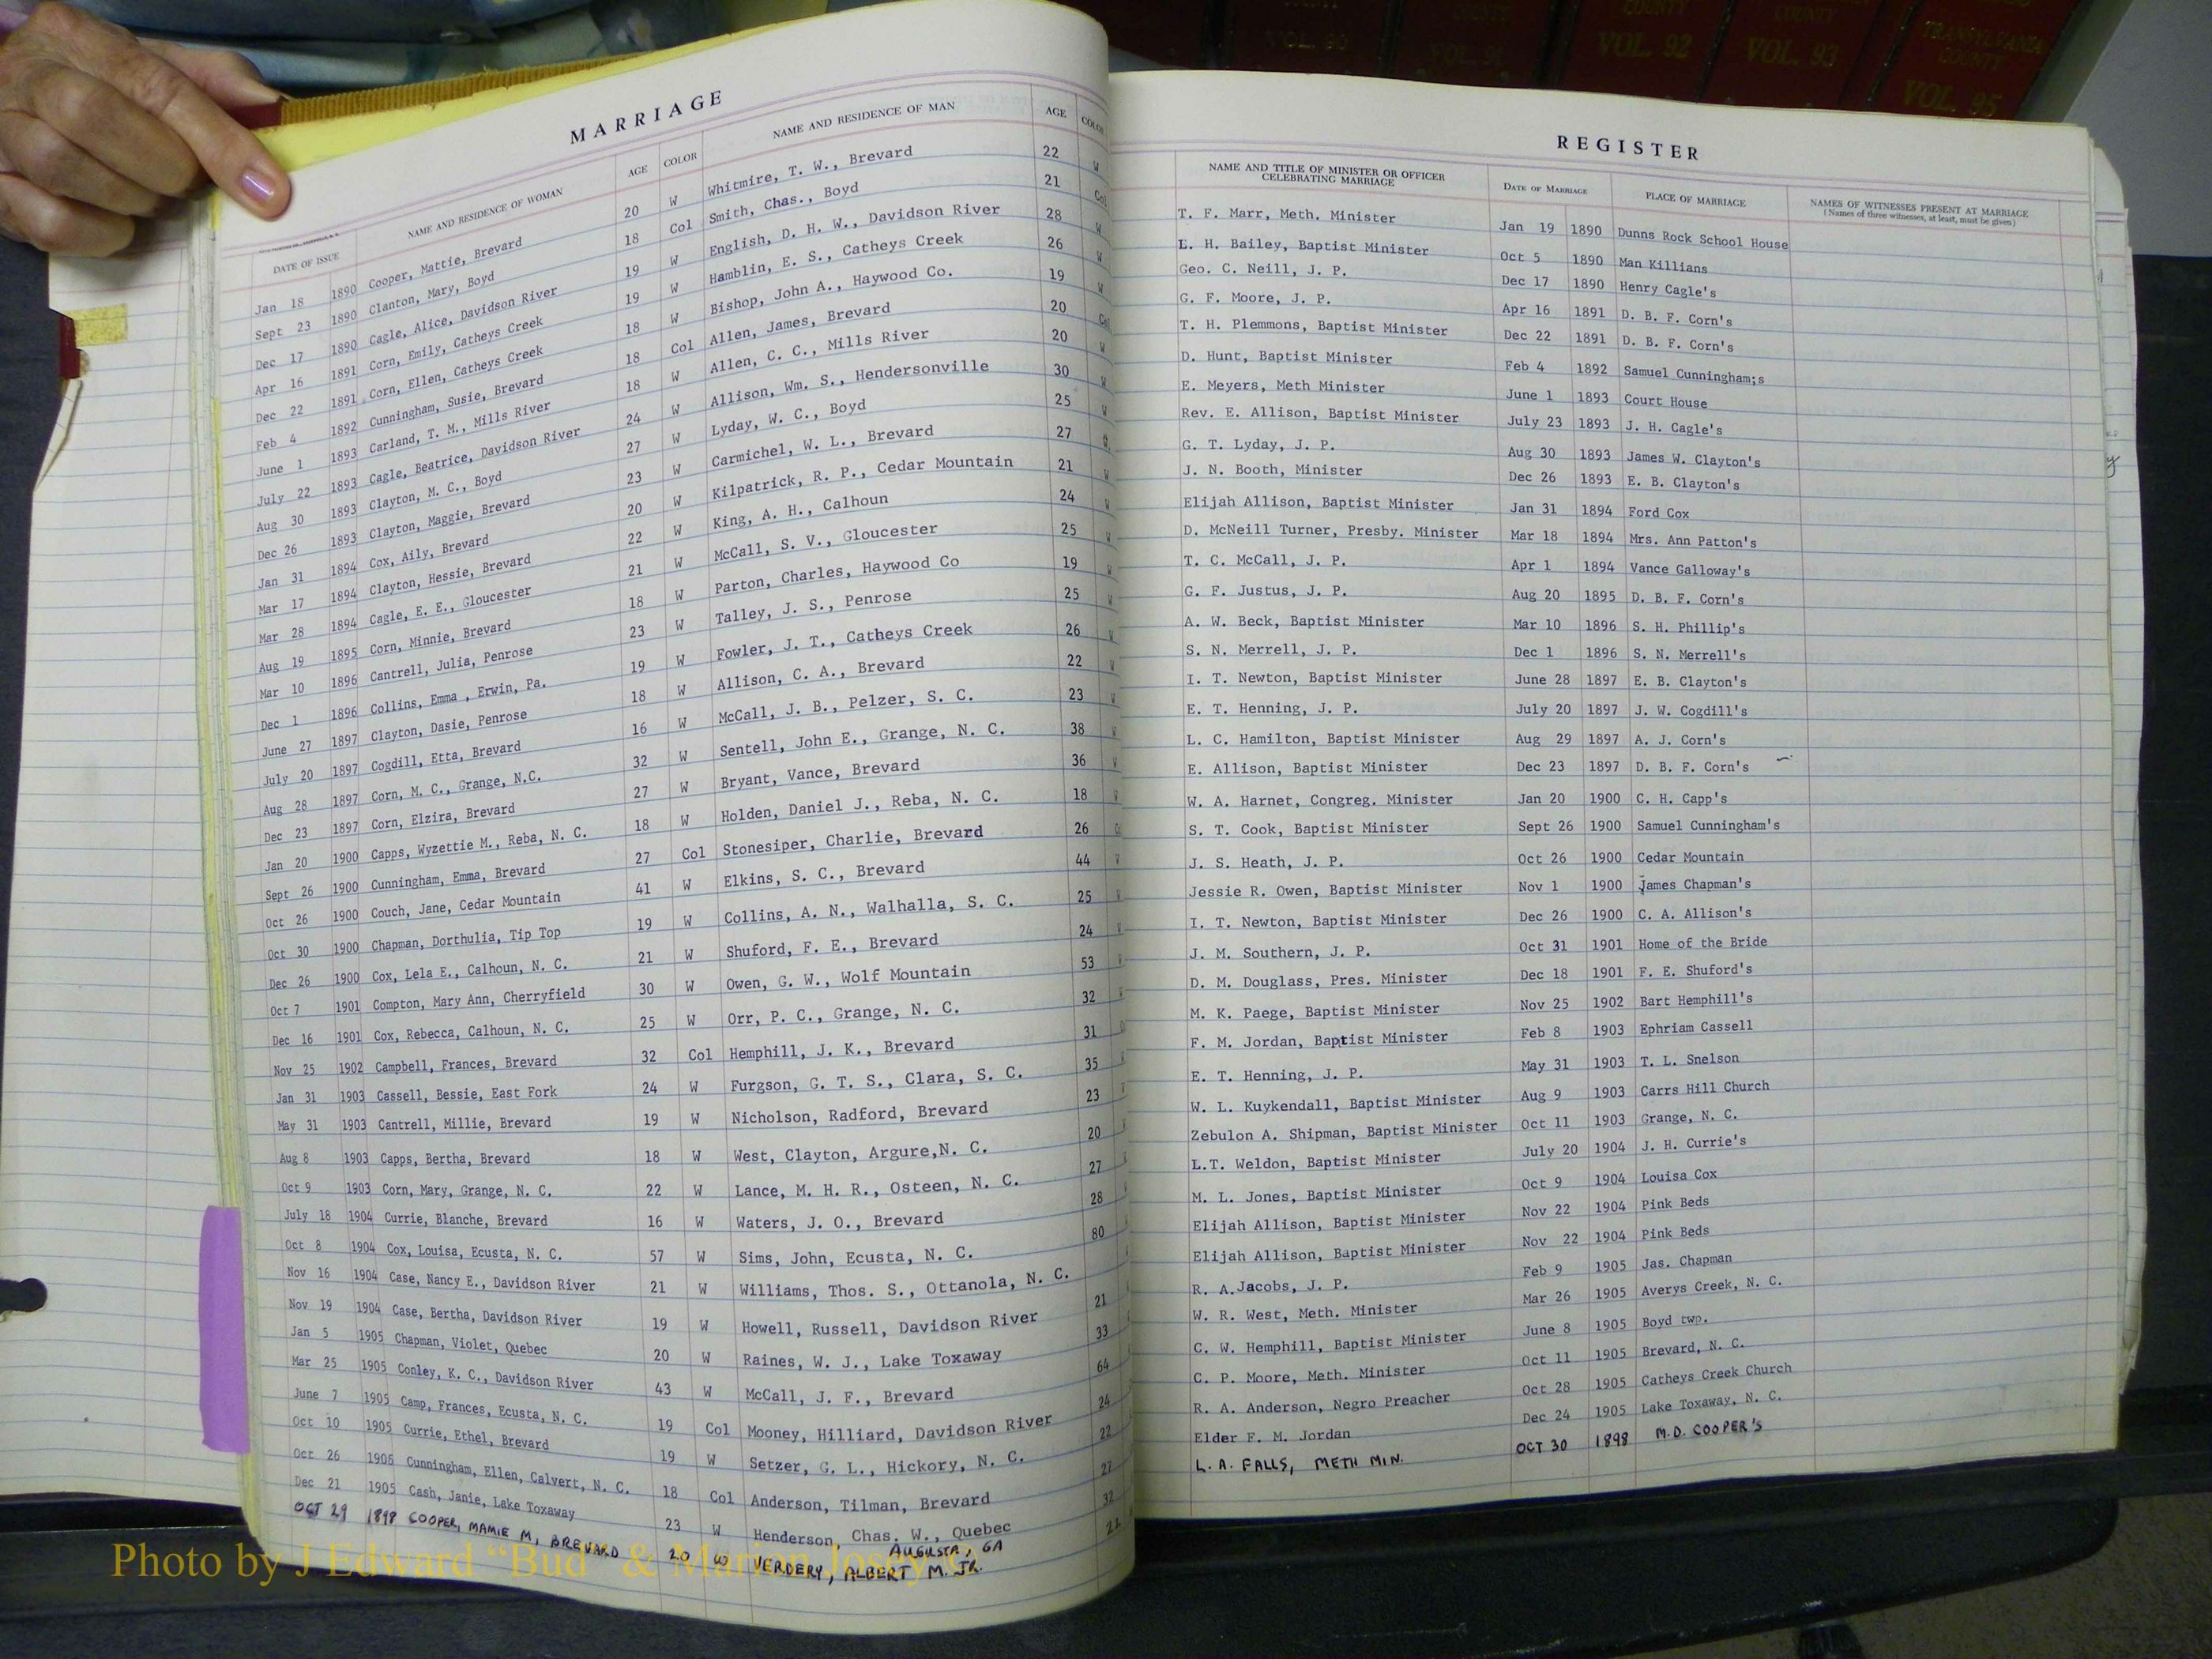 MARRIAGE
DATE OF ISSUE NAME AND RESIDENCE OF WOMAN AGE COLOR NAME AND RESIDENCE OF MAN AGE COLOR
Jan 18 1890 Cooper, Mattie, Brevard 20 W Whitmire, T. W., Brevard 22 W
Sept 23 1890 Clanton, Mary, Boyd 18 Col Smith, Chas., Boyd 21 Col
Dec 17 1890 Cagle, Alice, Davidson River 19 W English, D. H. W., Davidson River 28 W
Apr 16 1891 Corn, Emily, Catheys Creek 19 W Hamblin, E. S., Catheys Creek 26 W
Dec 22 1891 Corn, Ellen, Catheys Creek 18 W Bishop, John A., Haywood Co. 19 W
Feb 4 1892 Cunningham, Susie, Brevard 18 Col Allen, James, Brevard 20 Col
June 1 1893 Carland, T. M., Mills River 18 W Allen, C. C., Mills River 20 W
July 22 1893 Cagle, Beatrice, Davidson River 24 W Allison, Wm. S., Hendersonville 30 W
Aug 30 1893 Clayton, M. C., Boyd 27 W Lyday, W. C., Boyd 25 W
Dec 26 1893 Clayton, Maggie, Brevard 23 W Carmichel, W. L., Brevard 27
Jan 31 1894 Cox, Aily, Brevard 20 W Kilpatrick, R. P., Cedar Mountain 21 W
Mar 17 1894 Clayton, Hessie, Brevard 22 W King, A. H., Calhoun 24 W
Mar 28 1894 Cagle, E. E., Gloucester 21 W McCall, S. V., Gloucester 25 W
Aug 19 1895 Corn, Minnie, Brevard 18 W Parton, Charles, Haywood Co 19 W
Mar 10 1896 Cantrell, Julia, Penrose 23 W Talley, J. S., Penrose 25 W
Dec 1 1896 Collins, Emma , Erwin, Pa. 19 W Fowler, J. T., Catheys Creek 26 W
June 27 1897 Clayton, Dasie, Penrose 18 W Allison, C. A., Brevard 22 W
July 20 1897 Cogdill, Etta, Brevard 16 W McCall, J. B., Pelzer, S. C. 23 W
Aug 28 1897 Corn, M. C., Grange, N.C. 32 W Sentell, John E., Grange, N. C. 38
Dec 23 1897 Corn, Elzira, Brevard 27 W Bryant, Vance, Brevard 36
Jan 20 1900 Capps, Wyzettie M., Reba, N. C. 18 W Holden, Daniel J., Reba, N. C. 18
Sept 26 1900 Cunningham, Emma, Brevard 27 Col Stonesiper, Charlie, Brevard 26
Oct 26 1900 Couch, Jane, Cedar Mountain 41 W Elkins, S. C., Brevard 44
Oct 30 1900 Chapman, Dorthulia, Tip Top 19 W Collins, A. N., Walhalla, S. C. 25
Dec 26 1900 Cox, Lela E., Calhoun, N. C. 21 W Shuford, F. E., Brevard 24
Oct 7 1901 Compton, Mary Ann, Cherryfield 30 W Owen, G. W., Wolf Mountain 53
Dec 16 1901 Cox, Rebecca, Calhoun, N. C. 25 W Orr, P. C., Grange, N. C. 32
Nov 25 1902 Campbell, Frances, Brevard 32 Col Hemphill, J. K., Brevard 31
Jan 31 1903 Cassell, Bessie, East Fork 24 W Furgson, G. T. S., Clara, S. C. 35
May 31 1903 Cantrell, Millie, Brevard 19 W Nicholson, Radford, Brevard 23
Aug 8 1903 Capps, Bertha, Brevard 18 W West, Clayton, Argure,N. C. 20
Oct 9 1903 Corn, Mary, Grange, N. C. 22 W Lance, M. H. R., Osteen, N. C. 27
July 18 1904 Currie, Blanche, Brevard 16 W Waters, J. O., Brevard 28
Oct 8 1904 Cox, Louisa, Ecusta, N. C. 57 W Sims, John, Ecusta, N. C. 80
Nov 16 1904 Case, Nancy E., Davidson River 21 W Williams, Thos. S., Ottanola, N. C.
Nov 19 1904 Case, Bertha, Davidson River 19 W Howell, Russell, Davidson River 21
Jan 5 1905 Chapman, Violet, Quebec 20 W Raines, W. J., Lake Toxaway 33
Mar 25 1905 Conley, K. C., Davidson River 43 W McCall, J. F., Brevard 64
June 7 1905 Camp, Frances, Ecusta, N. C. 19 Col Mooney, Hilliard, Davidson River 24
Oct 10 1905 Currie, Ethel, Brevard 19 W Setzer, G. L., Hickory, N. C. 22
Oct 26 1906 Cunningham, Ellen, Calvert, N. C. 18 Col Anderson, Tilman, Brevard 27
Dec 21 1905 Cash, Janie, Lake Toxaway 23 W Henderson, Chas. W., Quebec 32
OCT 29 1898 COOPER, MAMIE M, BREVARD 20 W VERDERY, ALBERT M. JR. AUGUSTA, GA 22
REGISTER
NAME AND TITLE OF MINISTER OR OFFICER CELEBRATING MARRIAGE DATE OF MARRIAGE PLACE OF MARRIAGE NAMES OF WITNESSES PRESENT AT MARRIAGE
(Names of three witnesses, at least, must be given)
T. F. Marr, Meth. Minister Jan 19 1890 Dunns Rock School House
L. H. Bailey, Baptist Minister Oct 5 1890 Man Killians
Geo. C. Neill, J. P. Dec 17 1890 Henry Cagle's
G. F. Moore, J. P. Apr 16 1891 D. B. F. Corn's
T. H. Plemmons, Baptist Minister Dec 22 1891 D. B. F. Corn's
D. Hunt, Baptist Minister Feb 4 1892 Samuel Cunningham;s
E. Meyers, Meth Minister June 1 1893 Court House
Rev. E. Allison, Baptist Minister July 23 1893 J. H. Cagle's
G. T. Lyday, J. P. Aug 30 1893 James W. Clayton's
J. N. Booth, Minister Dec 26 1893 E. B. Clayton's
Elijah Allison, Baptist Minister Jan 31 1894 Ford Cox
D. McNeill Turner, Presby. Minister Mar 18 1894 Mrs. Ann Patton's
T. C. McCall, J. P. Apr 1 1894 Vance Galloway's
G. F. Justus, J. P. Aug 20 1895 D. B. F. Corn's
A. W. Beck, Baptist Minister Mar 10 1896 S. H. Phillip's
S. N. Merrell, J. P. Dec 1 1896 S. N. Merrell's
I. T. Newton, Baptist Minister June 28 1897 E. B. Clayton's
E. T. Henning, J. P. July 20 1897 J. W. Cogdill's
L. C. Hamilton, Baptist Minister Aug 29 1897 A. J. Corn's
E. Allison, Baptist Minister Dec 23 1897 D. B. F. Corn's
W. A. Harnet, Congreg. Minister Jan 20 1900 C. H. Capp's
S. T. Cook, Baptist Minister Sept 26 1900 Samuel Cunningham's
J. S. Heath, J. P. Oct 26 1900 Cedar Mountain
Jessie R. Owen, Baptist Minister Nov 1 1900 James Chapman's
I. T. Newton, Baptist Minister Dec 26 1900 C. A. Allison's
J. M. Southern, J. P. Oct 31 1901 Home of the Bride
D. M. Douglass, Pres. Minister Dec 18 1901 F. E. Shuford's
M. K. Paege, Baptist Minister Nov 25 1902 Bart Hemphill's
F. M. Jordan, Baptist Minister Feb 8 1903 Ephriam Cassell
E. T. Henning, J. P. May 31 1903 T. L. Snelson
W. L. Kuykendall, Baptist Minister Aug 9 1903 Carrs Hill Church
Zebulon A. Shipman, Baptist Minister Oct 11 1903 Grange, N. C.
L.T. Weldon, Baptist Minister July 20 1904 J. H. Currie's
M. L. Jones, Baptist Minister Oct 9 1904 Louisa Cox
Elijah Allison, Baptist Minister Nov 22 1904 Pink Beds
Elijah Allison, Baptist Minister Nov 22 1904 Pink Beds
R. A.Jacobs, J. P. Feb 9 1905 Jas. Chapman
W. R. West, Meth. Minister Mar 26 1905 Averys Creek, N. C.
C. W. Hemphill, Baptist Minister June 8 1905 Boyd twp.
C. P. Moore, Meth. Minister Oct 11 1905 Brevard, N. C.
R. A. Anderson, Negro Preacher Oct 28 1905 Catheys Creek Church
Elder F. M. Jordan Dec 24 1905 Lake Toxaway, N. C.
L. A. FALLS, METH MIN. OCT 30 1898 M.D. COOPER'S
VOL. 92
VOL. 93
TRANSYLVANIA
COUNTY
VOL. 95
Photo by J Edward “Bud” & Marion Josey ©